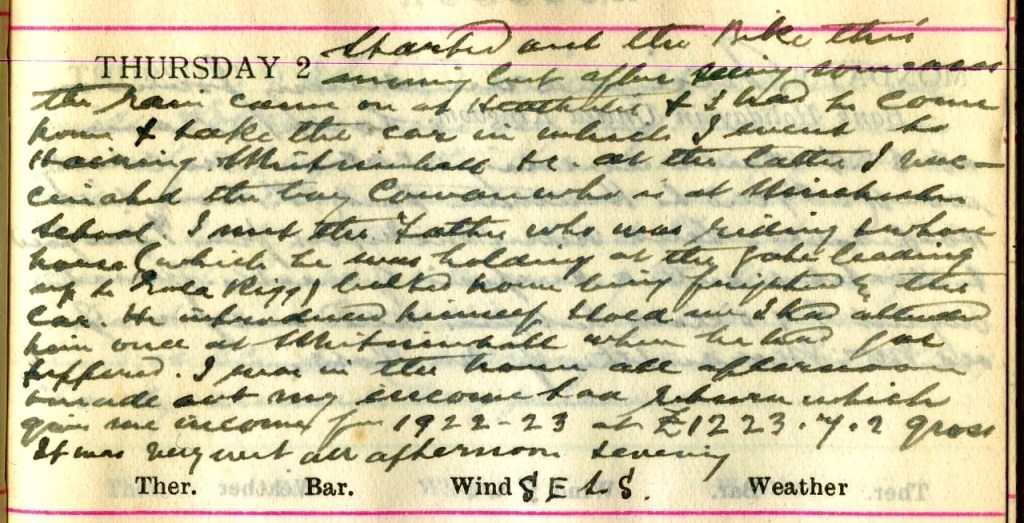 Started out the Bike this
THURSDAY 2 morning but after seeing some cases
the rain came on at & I had to come
home & take the car in which I went to
Staining Whitrinhall &c. at the latter I vac-
cinated the boy Cowan who is at Winchester
School I met the Father who was riding & whose
horse (which he was holding at the gate leading
up to Rigg) bolted home being frightened by the
car. He introduced himself & told me I had attended
him once at Whitrinhall when he had got
. I was in the house all afternoon
& made out my income tax return which
gives me income for 1922-23 at £1223.7.2 gross
It was very wet all afternoon & evening
Ther. Bar. Wind S E & S. Weather